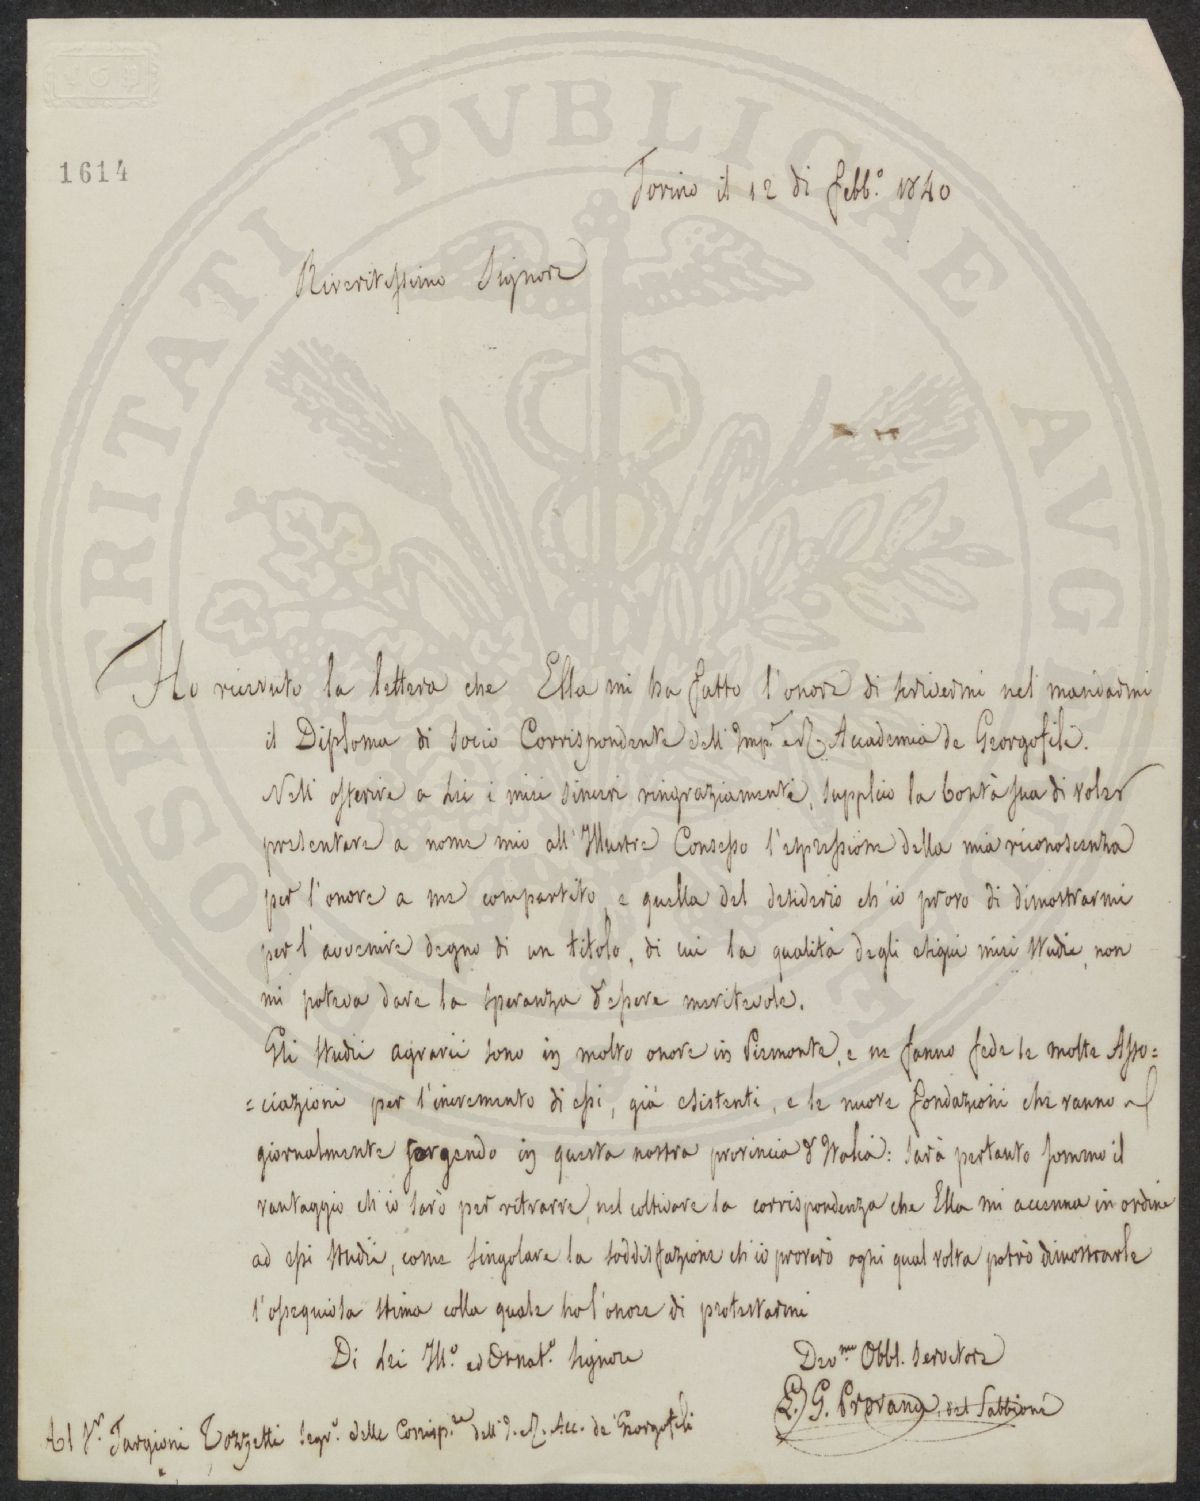 1614
Torino il 12 di Febb.º 1840
Riveritissimo Signore
Ho ricevuto la lettera che Ella mi ha fatto l'onore di scrivermi nel mandarmi
il Diploma di Socio Corrispondente dell'Imp. e R. Accademia de Georgofili.
Nell'offerire a Lei i miei sinceri ringraziamenti, supplico la bontà sua di voler
presentare a nome mio all'Illustre Consesso l'espressione della mia riconoscenza
per l'onore a me compartito, e quella del desiderio ch'io provo di dimostrarmi
per l'avvenire degno di un titolo, di cui la qualità degli esigui miei studii, non
mi poteva dare la speranza d'essere meritevole.
Gli studii agrarii sono in molto onore in Piemonte, e ne fanno fede le molte Asso=
=ciazioni per l'incremento di essi, già esistenti, e le nuove fondazioni che vanno
giornalmente sorgendo in questa nostra provincia d'Italia: sarà pertanto sommo il
vantaggio ch'io sarò per ritrarre, nel coltivare la corrispondenza che Ella mi accenna in ordine
ad essi studii, come singolare la soddisfazione ch'io proverò ogni qual volta potrò dimostrarle
l'ossequiosa stima colla quale ho l'onore di protestarmi
Di Lei Ill.º ed Ornat.º Signore
Dev.mo Obbl. Servitore
L. G. Provana del Sabbione
Al S.r Targioni Tozzetti Segr.º delle Corrisp.ze dell'I. R. Acc. de' Georgofili
PROSPERITATI PVBLICAE AVGENDAE